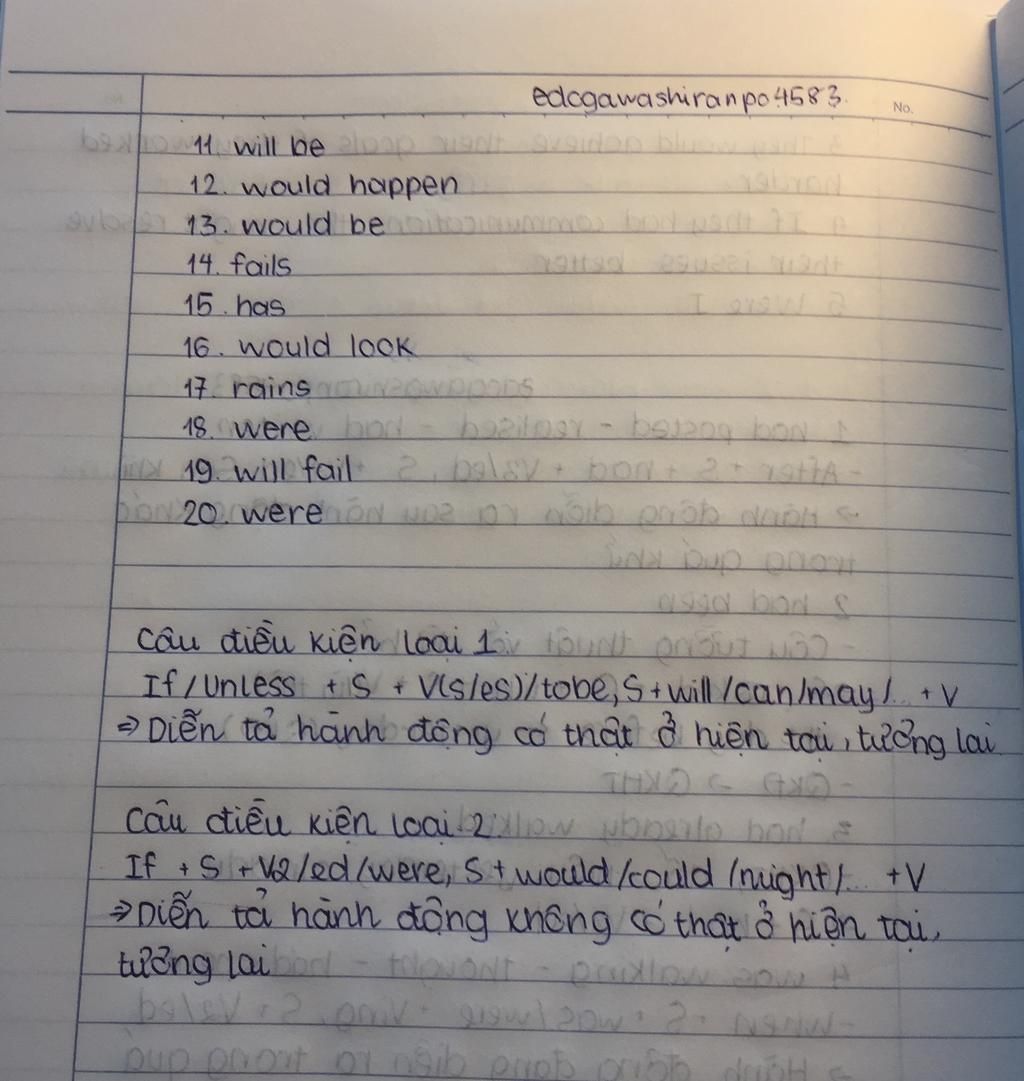 edogawashiranpo4583.
No.
11. will be
12. would happen
13. would be
14. fails
15. has
16. would look
17. rains
18. were
19. will fail
20. were
Câu điều kiện loại 1:
If/Unless + S + V(s/es)/tobe, S + will/can/may/... + V
⇒ Diễn tả hành động có thật ở hiện tại, tưởng lai
Câu điều kiện loại 2:
If + S + V2/ed/were, S + would/could/might/... + V
⇒ Diễn tả hành động không có thật ở hiện tại,
tưởng lai